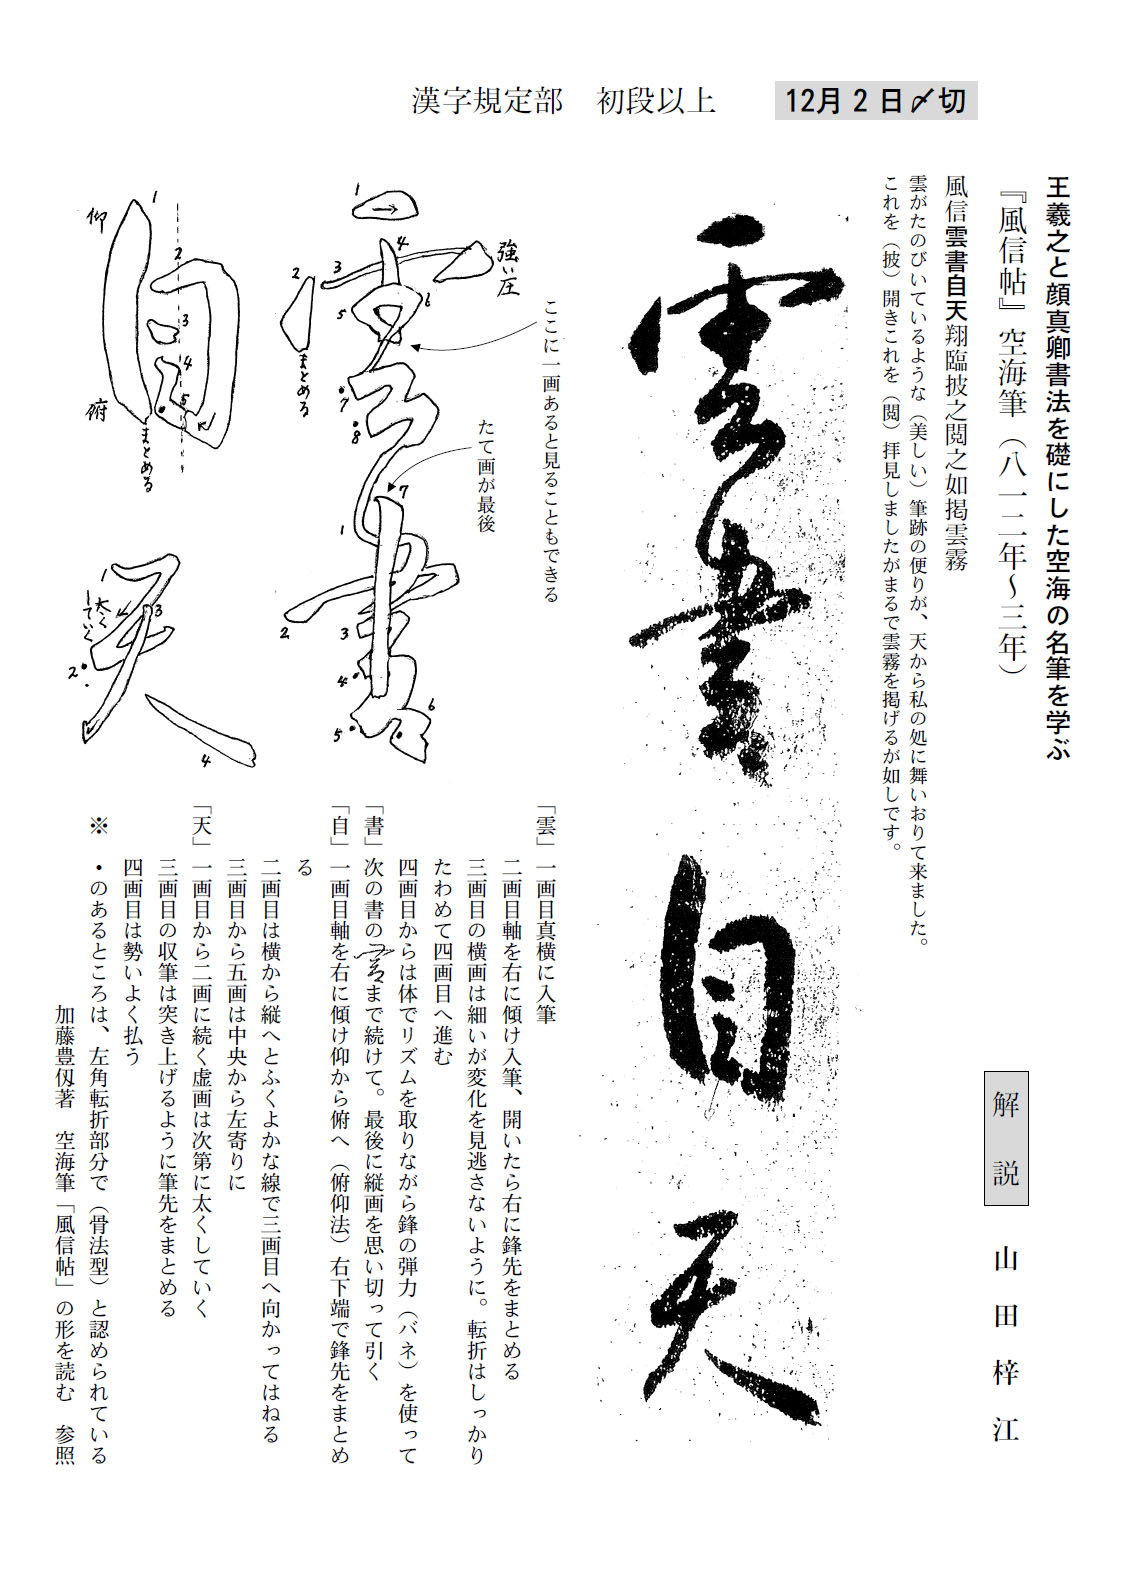 12月２日〆切
漢字規定部　初段以上
王羲之と顔真卿書法を礎にした空海の名筆を学ぶ
『風信帖』空海筆（八一二年～三年）
解説
山田梓江
風信雲書自天翔臨披之閲之如掲雲霧
雲がたのびいているような（美しい）筆跡の便りが、天から私の処に舞いおりて来ました。
これを（披）開きこれを（閲）拝見しましたがまるで雲霧を掲げるが如しです。
雲書自天
ここに一画あると見ることもできる
強い圧
たて画が最後
1
2
3
4
5
6
7
8
まとめる
1
2
3
4
5
6
7
仰
俯
1
2
3
4
5
まとめる
1
太く
していく
2
3
4
「雲」一画目真横に入筆
二画目軸を右に傾け入筆、開いたら右に鋒先をまとめる
三画目の横画は細いが変化を見逃さないように。転折はしっかり
たわめて四画目へ進む
四画目からは体でリズムを取りながら鋒の弾力（バネ）を使って
「書」次の書のまで続けて。最後に縦画を思い切って引く
「自」一画目軸を右に傾け仰から俯へ（俯仰法）右下端で鋒先をまとめ
る
二画目は横から縦へとふくよかな線で三画目へ向かってはねる
三画目から五画は中央から左寄りに
「天」一画目から二画に続く虚画は次第に太くしていく
三画目の収筆は突き上げるように筆先をまとめる
四画目は勢いよく払う
※　・のあるところは、左角転折部分で（骨法型）と認められている
加藤豊仭著　空海筆「風信帖」の形を読む　参照